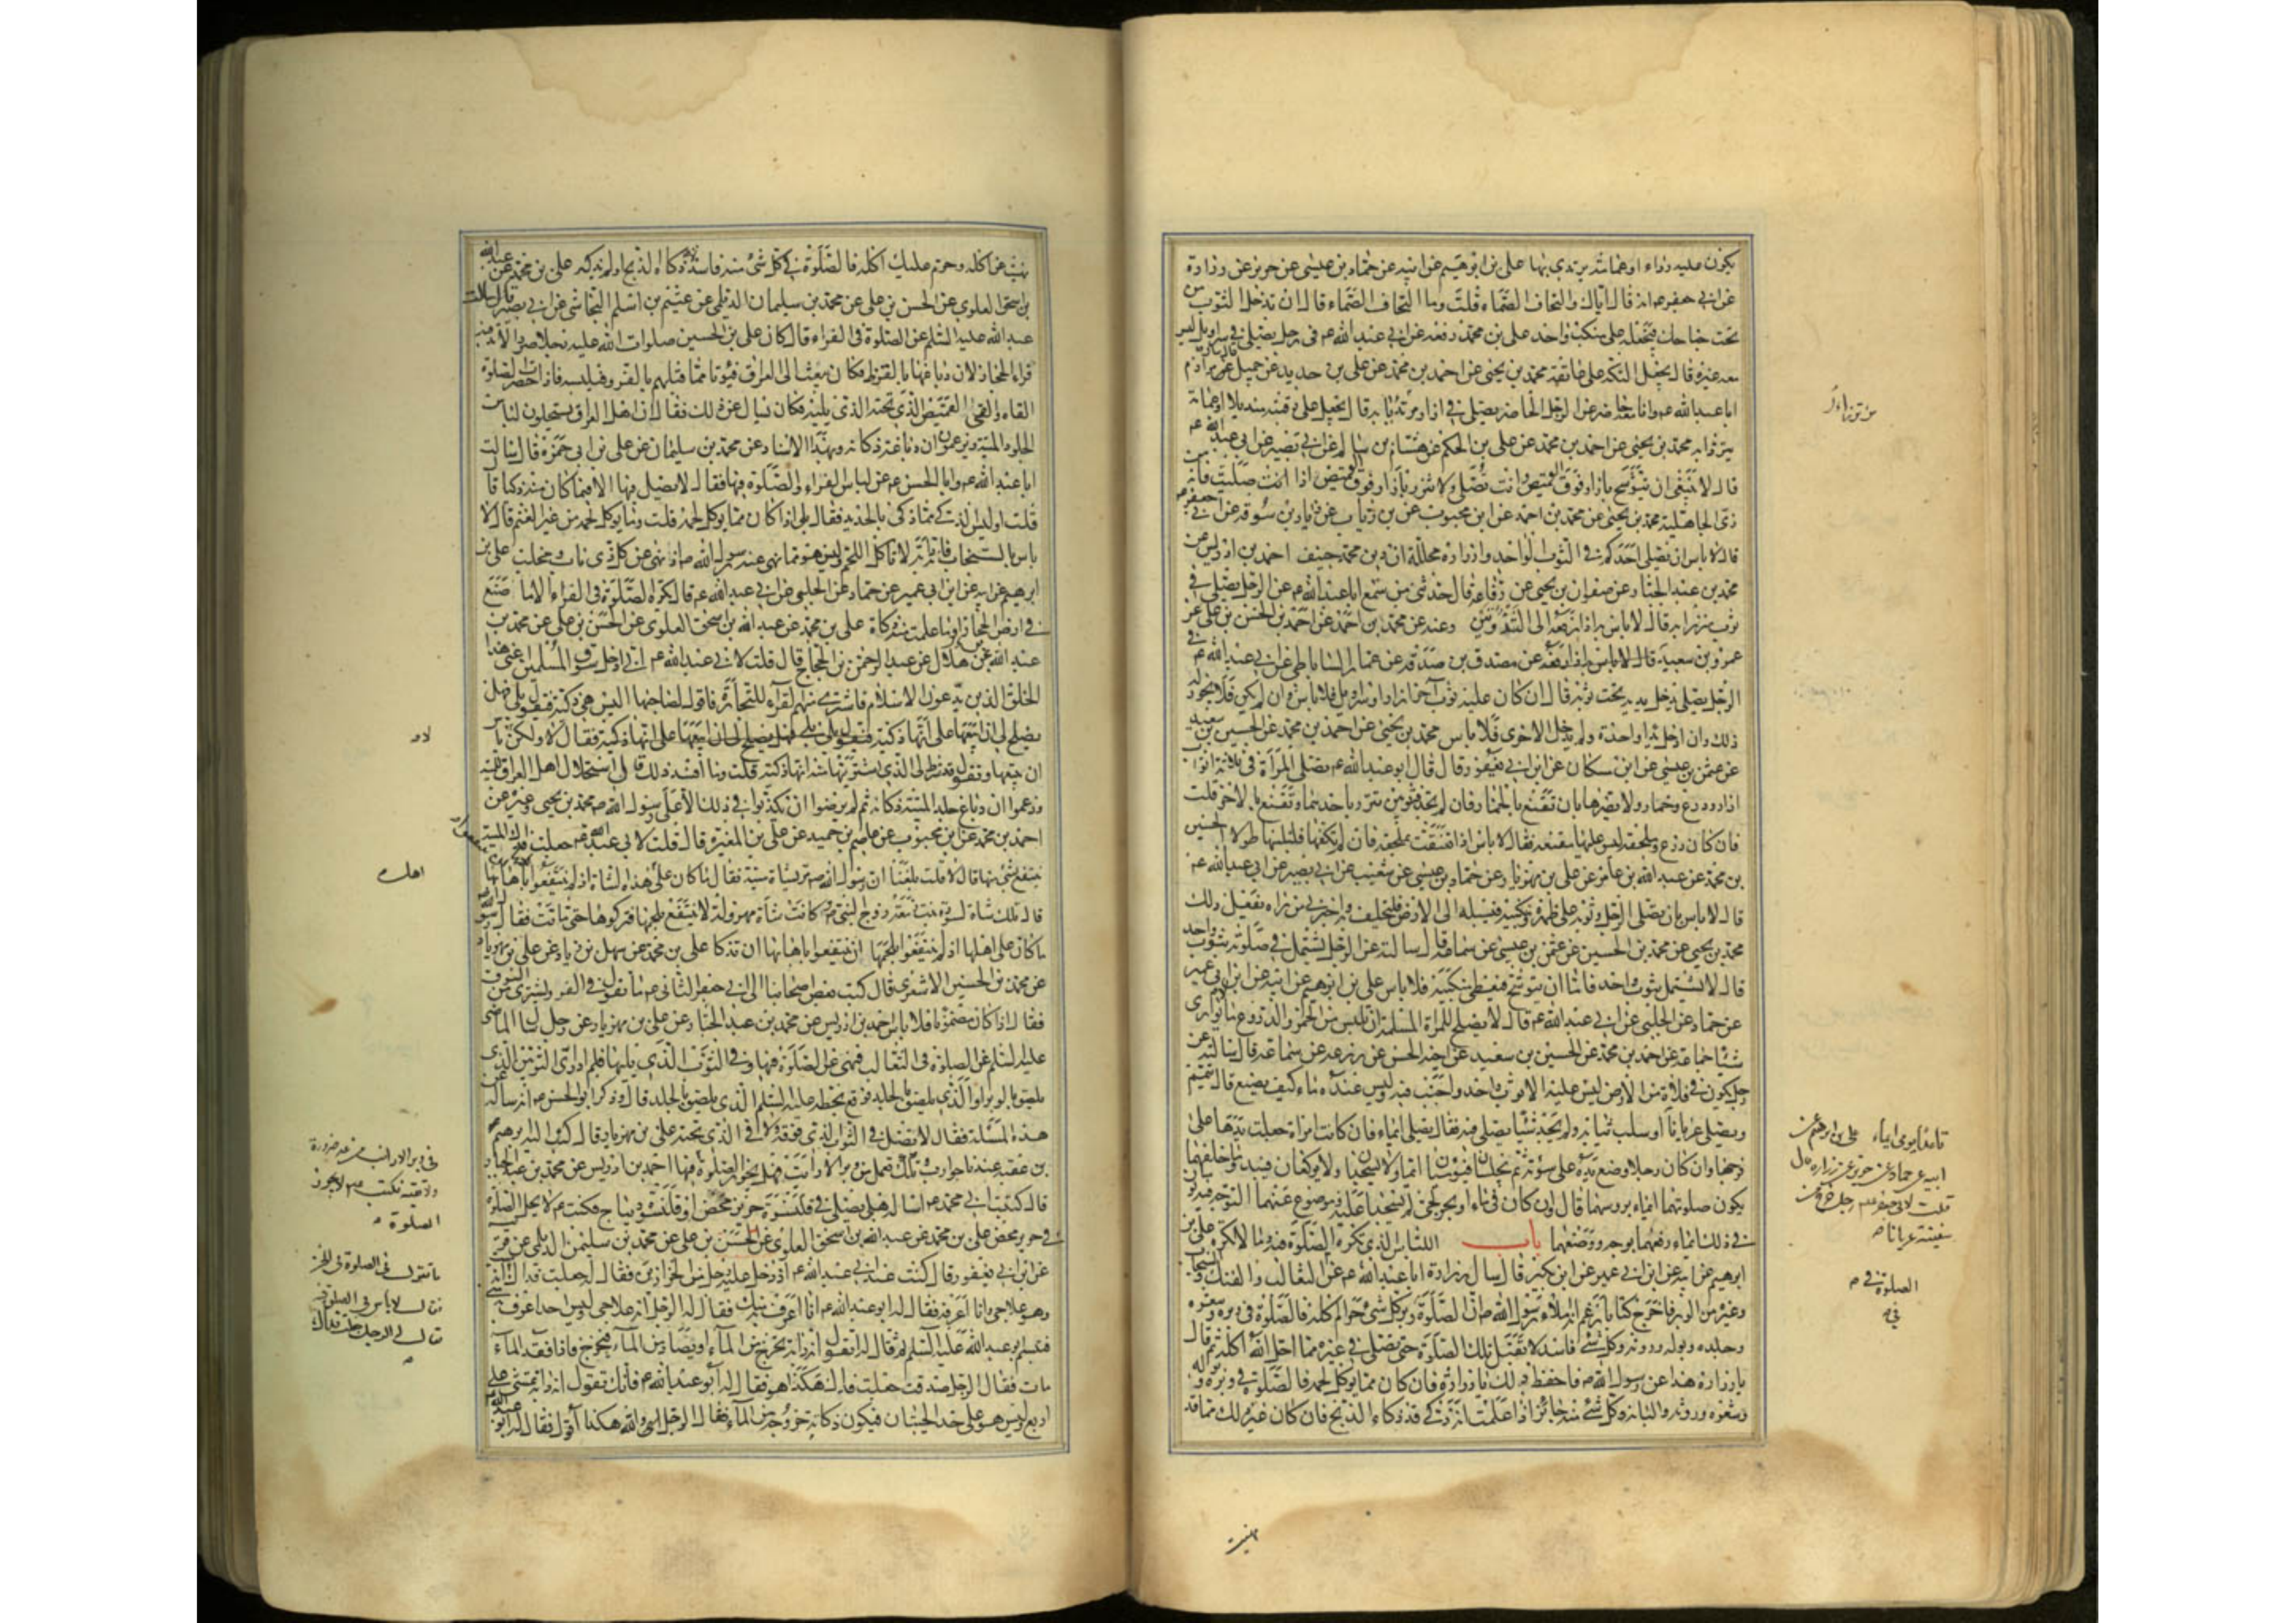 يكون عليه رداء او عمامة يرتدي بها علي بن ابرهيم عن ابيه عن حماد بن عيسى عن حريز عن زرارة
عن ابي جعفر ع انه قال اياك والتحاف الصماء قلت وما التحاف الصماء قال ان تدخل الثوب من
تحت جناحك فتجعله على منكب واحد علي بن محمد رفعه عن ابي عبد الله ع في رجل يصلي في سراويل ليس
معه غيره قال يجعل التكة على عاتقه محمد بن يحيى عن احمد بن محمد عن علي بن حديد عن جميل
ابا عبد الله ع وانا معه حاضر عن الرجل الحاضر يصلي في ازار مرتديا به قال يجعل على رقبته منديلا او عمامة
يتردا به محمد بن يحيى عن احمد بن محمد عن علي بن الحكم عن هشام بن سالم عن ابي بصير عن ابي عبد الله ع
قال لا ينبغي ان تتوشح بازار فوق القميص وانت تصلي ولا تتزر بازار فوق القميص اذا انت صليت فانه من
زي الجاهلية محمد بن يحيى عن محمد بن احمد عن ابن محبوب عن زياد بن سوقة عن ابي جعفر ع
قال لا باس ان يصلي احدكم في الثوب الواحد وازراره محللة ان دين محمد حنيف احمد بن ادريس عن
محمد بن عبد الجبار عن صفوان بن يحيى عن رفاعة قال حدثني من سمع ابا عبد الله ع عن الرجل يصلي في
ثوب يتزر به قال لا باس به اذا رفعه الى الثندوتين وعنه عن محمد بن احمد عن احمد بن الحسن بن علي عن
عمرو بن سعيد عن مصدق بن صدقه عن عمار الساباطي عن ابي عبد الله ع في
الرجل يصلي فيدخل يديه تحت ثوبه قال ان كان عليه ثوب آخر ازار او سراويل فلا باس وان لم يكن فلا يجوز له
ذلك وان ادخل يدا واحدة ولم يدخل الاخرى فلا باس محمد بن يحيى عن احمد بن محمد عن الحسين بن سعيد
عن عثمن بن عيسى عن ابن مسكان عن ابن ابي يعفور قال قال ابو عبد الله ع تصلي المرأة في ثلاثة اثواب
ازار ودرع وخمار ولا يضرها بان تقنع بالخمار فان لم تجد فثوبين تتزر باحدهما وتقنع بالاخر قلت
فان كان درع وملحفة ليس عليها مقنعة فقال لا باس اذا تقنعت بملحفة فان لم تكفها فلتلبسها طولا الحسين
بن محمد عن عبد الله بن عامر عن علي بن مهزيار عن حماد بن عيسى عن شعيب عن ابي بصير عن ابي عبد الله ع
قال لا باس بان يصلي الرجل وثوبه على ظهره ومنكبيه فيسبله الى الارض ولا يلتحف به واخبرني من راه يفعل ذلك
محمد بن يحيى عن محمد بن الحسين عن عثمن بن عيسى عن سماعة قال سالته عن الرجل يشتمل في صلوته بثوب واحد
قال لا يشتمل بثوب واحد فاما ان يتوشح فيغطي منكبيه فلا باس علي بن ابرهيم عن ابيه عن ابن ابي عمير
عن حماد عن الحلبي عن ابي عبد الله ع قال لا يصلح للمرأة المسلمة ان تلبس من الخمر والدروع ما لا يواري
شيئا جماعة عن احمد بن محمد عن الحسين بن سعيد عن اخيه الحسن عن زرعه عن سماعة قال سالته عن
رجل يكون في فلاة من الارض ليس عليه الا ثوب واحد واجنب فيه وليس عنده ماء كيف يصنع قال يتيمم
ويصلي عريانا
او سلب ثيابه ولم يجد شيئا يصلي فيه فقال يصلي ايماء فان كانت امراة جعلت يدها على
فرجها وان كان رجلا وضع يده على سوءته ثم يجلسان فيوميان ايماء ولا يسجدان ولا يركعان فيبدو ما خلفهما
يكون صلوتهما ايماء بروسهما قال وان كان في ماء او بحر لجي لم يسجدا عليه وموضوع عنهما التوجه فيه يوميان
في ذلك ايماء رفعهما توجه ووضعهما باب اللباس الذي تكره الصلوة فيه وما لا تكره علي بن
ابرهيم عن ابيه عن ابن ابي عمير عن ابن بكير قال سال زرارة ابا عبد الله ع عن الثعالب والفنك والسنجاب
وغيره من الوبر فاخرج كتابا زعم انه املاء رسول الله ص ان الصلوة في وبر كل شئ حرام اكله فالصلوة في وبره وشعره
وجلده وبوله وروثه وكل شئ منه فاسد لا تقبل تلك الصلوة حتى تصلي في غيره مما احل الله اكله ثم قال
يا زرارة هذا عن رسول الله ص فاحفظ ذلك يا زرارة فان كان مما يوكل لحمه فالصلوة في وبره وبوله
وشعره وروثه والبانه وكل شئ منه جائز اذا علمت انه ذكي قد ذكاه الذبح فان كان غير ذلك مما قد
علي بن ابرهيم عن
ابيه عن حماد عن حريز عن زراره قال
قلت لابي جعفر ع رجل خرج من
سفينة عريانا
الصلوة في
نهيت عن اكله وحرم عليك اكله فالصلوة في كل شئ منه فاسد ذكاه الذبح او لم يذكه علي بن محمد عن عبد الله
بن اسحق العلوي عن الحسن بن علي عن محمد بن سليمان الديلمي عن عيثم بن اسلم النجاشي عن ابي بصير قال سالت
عبد الله عليه السلم عن الصلوة في الفراء قال كان علي بن الحسين صلوات الله عليه رجلا صردا لا تدفئه
فراء الحجاز لان دباغها بالقرظ فكان يبعث الى العراق فيوتا مما قبلهم بالفرو فيلبسه فاذا حضرت الصلوة
القاه والقى القميص الذي تحته الذي يليه فكان يسال عن ذلك فقال ان اهل العراق يستحلون لباس
الجلود الميتة ويزعمون ان دباغه ذكاته وبهذا الاسناد عن محمد بن سليمان عن علي بن ابي حمزة قال سالت
ابا عبد الله ع وابا الحسن ع عن لباس الفراء والصلوة فيها فقال لا تصل فيها الا فيما كان منه ذكيا قال
قلت اوليس الذكي مما ذكي بالحديد فقال بلى اذا كان مما يوكل لحمه قلت وما يوكل لحمه من غير الغنم قال لا
باس بالسنجاب فانه دابة لا تاكل اللحم وليس هو مما نهى عنه رسول الله ص اذ نهى عن كل ذي ناب ومخلب علي بن
ابرهيم عن ابيه عن ابن ابي عمير عن حماد عن الحلبي عن ابي عبد الله ع قال تكره الصلوة في الفراء الا ما صنع
في ارض الحجاز او ما علمت منه ذكاة علي بن محمد عن عبد الله بن اسحق العلوي عن الحسن بن علي عن محمد بن
عبد الله بن هلال عن عبد الرحمن بن الحجاج قال قلت لابي عبد الله ع اني ادخل سوق المسلمين اعني هذا
الخلق الذين يدعون الاسلام فاشتري منهم الفراء للتجارة فاقول لصاحبها اليس هي ذكية فيقول بلى فهل
يصلح لي ان ابيعها على انها ذكية فقال لا ولكن لا باس
ان تبيعها وتقول قد شرط لي الذي اشتريتها منه انها ذكية قلت وما افسد ذلك قال استحلال اهل العراق للميتة
وزعموا ان دباغ جلد الميتة ذكاته ثم لم يرضوا ان يكذبوا في ذلك الا على رسول الله ص محمد بن يحيى وغيره عن
احمد بن محمد عن ابن محبوب عن عاصم بن حميد عن علي بن المغيرة قال قلت لابي عبد الله ع جعلت فداك الميتة
ينتفع بشئ منها قال لا قلت بلغنا ان رسول الله ص مر بشاة ميتة فقال ما كان على هذه الشاة اذ لم ينتفعوا باهابها
قال تلك شاة لسودة بنت زمعة زوج النبي ص وكانت شاة مهزولة لا ينتفع بلحمها فتركوها حتى ماتت فقال رسول الله ص
ما كان على اهلها اذ لم ينتفعوا بلحمها ان ينتفعوا باهابها ان تذكا علي بن محمد عن سهل بن زياد عن علي بن مهزيار
عن محمد بن الحسين الاشعري قال كتب بعض اصحابنا الى ابي جعفر الثاني ع ما تقول في الفرو يشترى من السوق
فقال اذا كان مضمونا فلا باس احمد بن ادريس عن محمد بن عبد الجبار عن علي بن مهزيار عن رجل سال الماضي
عليه السلم عن الصلوة في الثعالب فنهى عن الصلوة فيها وفي الثوب الذي يليها فلم ادر اي الثوبين الذي
يلصق بالوبر او الذي يلصق بالجلد فوقع بخطه عليه السلم الذي يلصق بالجلد قال وذكر ابو الحسن ع انه ساله عن
هذه المسئلة فقال لا تصل في الثوب الذي فوقه ولا في الذي تحته علي بن مهزيار قال كتب اليه ابرهيم
بن عقبة عندنا جوارب وتكك تعمل من وبر الارانب فهل يجوز الصلوة فيها احمد بن ادريس عن محمد بن عبد الجبار
قال كتبت الى ابي محمد ع اساله هل يصلى في قلنسوة حرير محض او قلنسوة ديباج فكتب ع لا يحل الصلوة
في حرير محض علي بن محمد عن عبد الله بن اسحق العلوي عن الحسن بن علي عن محمد بن سليمن الديلمي عن قريب
عن ابن ابي يعفور قال كنت عند ابي عبد الله ع اذ دخل عليه رجل من الخزازين فقال له جعلت فداك
وهو علاجي وانا اعرفه فقال له ابو عبد الله ع انا اعرف به منك فقال له الرجل انه علاجي وليس احد اعرف به مني
فتبسم ابو عبد الله عليه السلم ثم قال له اتقول انه دابة تخرج من الماء او تصاد من الماء فتخرج فاذا فقد الماء
مات فقال الرجل صدقت جعلت فداك هكذا هو فقال له ابو عبد الله ع فانك تقول انه دابة تمشي على
اربع وليس هو على حد الحيتان فيكون ذكاته خروجه من الماء فقال الرجل اي والله هكذا اقول فقال له ابو عبد الله ع
في وبر الارانب من غير ضرورة
ولا تقية فكتب ع لا يجوز
الصلوة
ما تقول في الصلوة في الخز
فقال لا باس في الصلوة فيه
فقال له الرجل جعلت فداك
نهيت